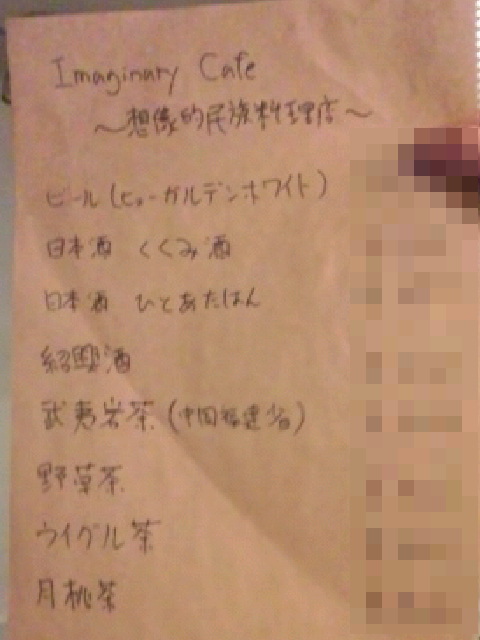 Imaginary Cafe
～想像的民族料理店～
ビール(ヒューガルデンホワイト)
日本酒 くくみ酒
日本酒 ひとあたはん
紹興酒
武夷岩茶(中国福建省)
野草茶
ウイグル茶
月桃茶